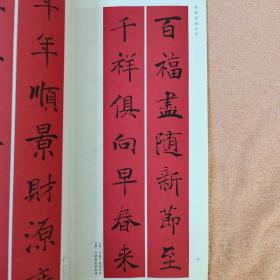 百福盡随新節至
千祥俱向早春来
年年順景財源